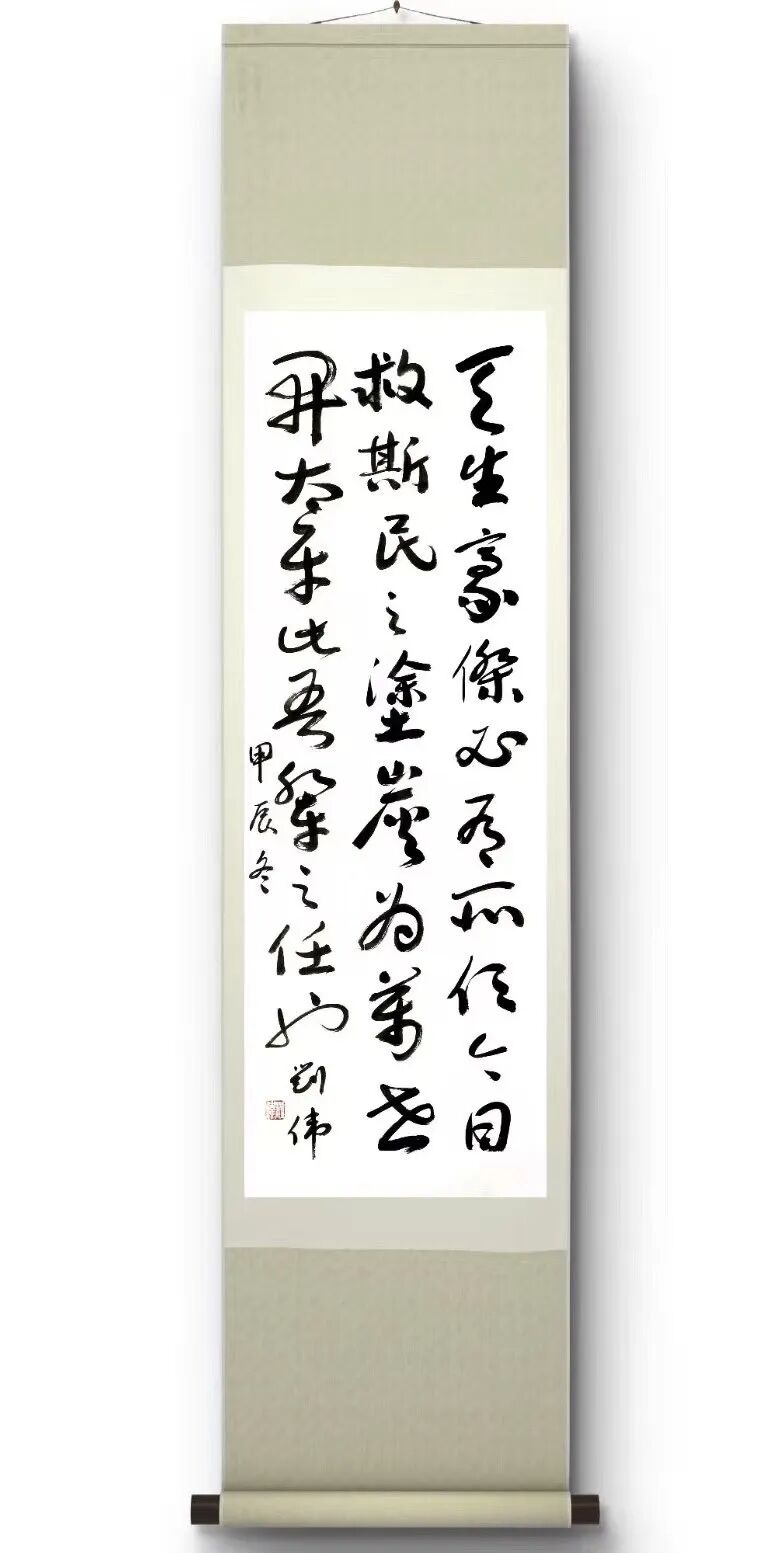 天生豪傑必有所任今日
救斯民之塗炭為萬世
開太平此吾輩之任也
甲辰冬
劉伟